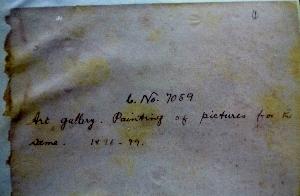 L. No. 7059
Art gallery. Painting of pictures for the
same. 1896-99.